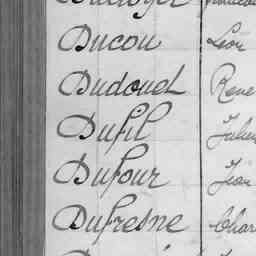 Ducou Léon
Dudouet René
Dufil Julien
Dufour Jean
Dufresne Char